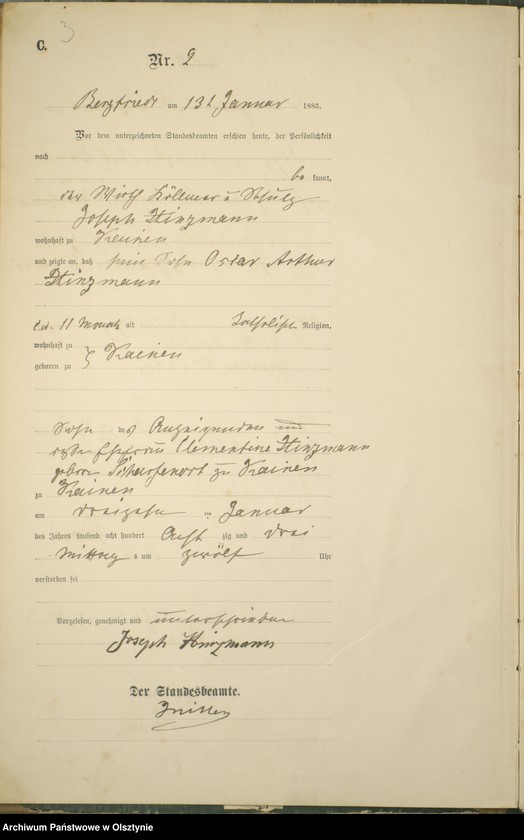 3
C.
Nr. 2
Bergfriede am 13t Januar 1883.
Vor dem unterzeichneten Standesbeamten erschien heute, der Persönlichkeit
nach
be kannt,
der Wirth Köllmer u Schulz
Joseph Hinzmann
wohnhaft zu Kainen
und zeigte an, daß sein Sohn Oscar Arthur
Hinzmann
11 Monate alt katholischer Religion,
wohnhaft zu
geboren zu Kainen
Sohn des Anzeigenden und
Ehefrau Clementine Hinzmann
geborne Scharfenort zu Kainen
zu Kainen
am dreizehn ten Januar
des Jahres tausend acht hundert Acht zig und drei
Mittag s um zwölf Uhr
verstorben sei
Vorgelesen, genehmigt und unterschrieben
Joseph Hinzmann
Der Standesbeamte.
Archiwum Państwowe w Olsztynie